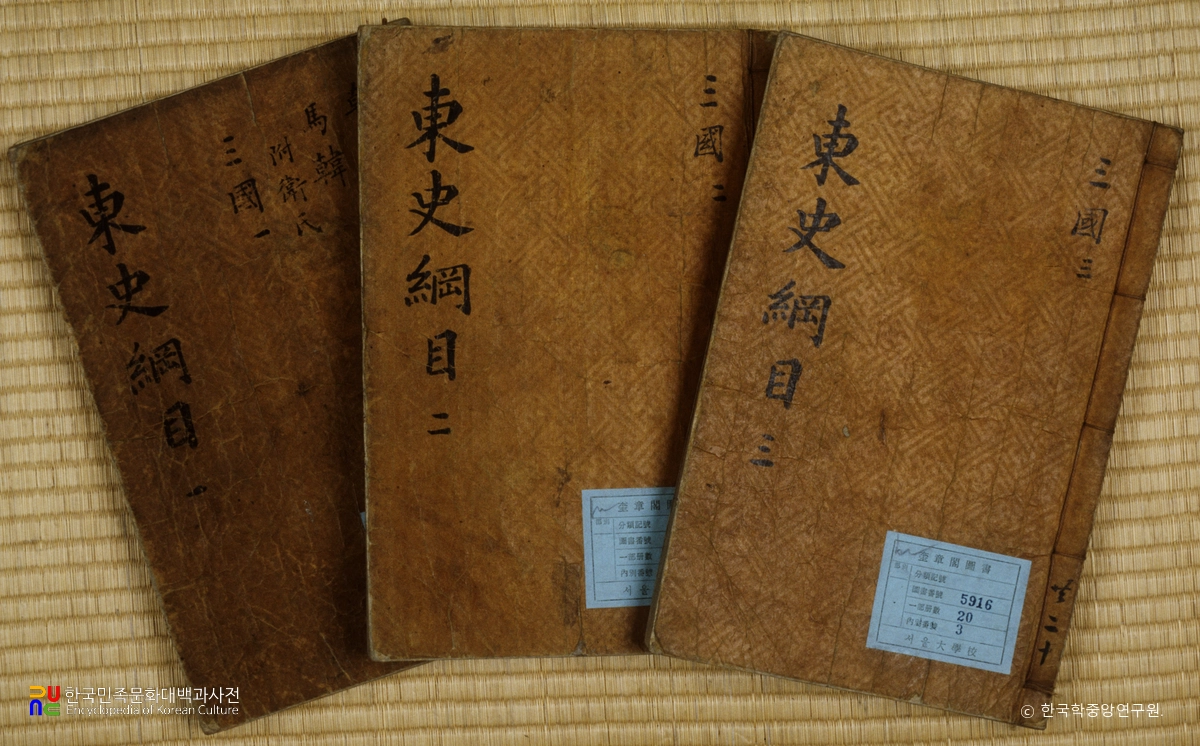 東史綱目 一
三國 一
附衛氏
馬韓
東史綱目 二
三國 二
東史綱目 三
三國 三
奎章閣圖
分類記號
圖書番號
一部冊數
內別番號
서울
奎章閣圖書
分類記號
圖書番號 5916
一部冊數 20
內別番號 3
서울大學校
共二十
한국민족문화대백과사전
Encyclopedia of Korean Culture
ⓒ 한국학중앙연구원.